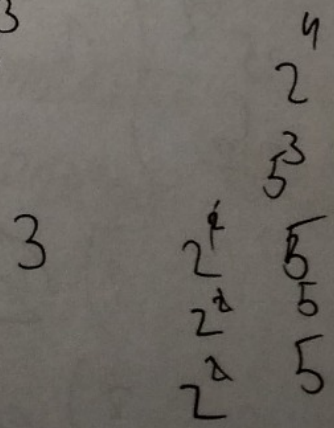 3
4
2
5³
3 2 5
2² 5
2² 5